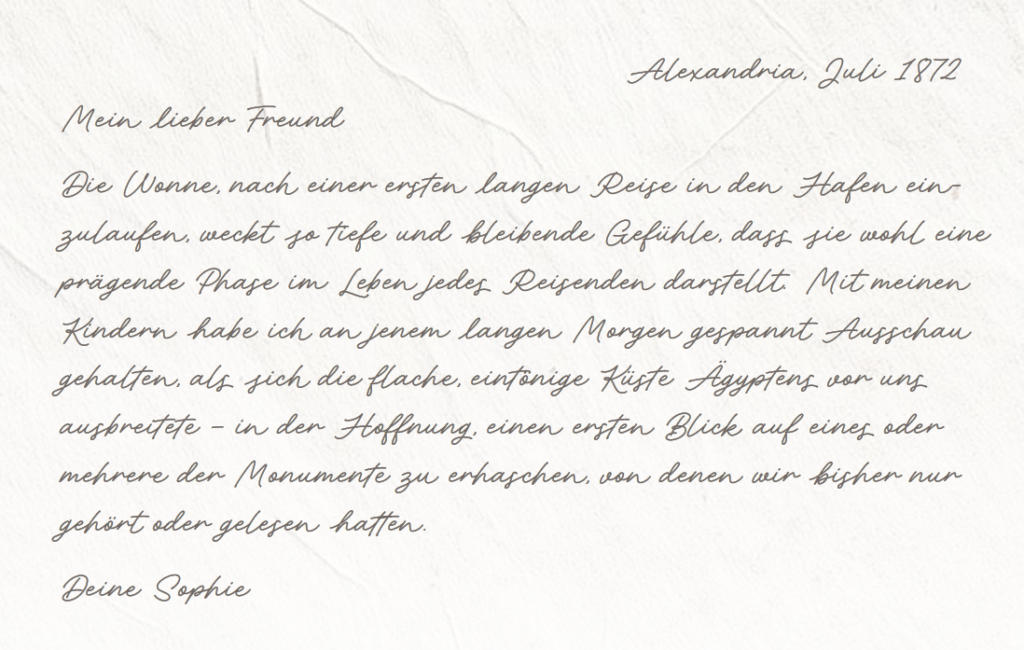 Alexandria, Juli 1872
Mein lieber Freund
Die Wonne, nach einer ersten langen Reise in den Hafen ein-
zulaufen, weckt so tiefe und bleibende Gefühle, dass sie wohl eine
prägende Phase im Leben jedes Reisenden darstellt. Mit meinen
Kindern habe ich an jenem langen Morgen gespannt Ausschau
gehalten, als sich die flache, eintönige Küste Ägyptens vor uns
ausbreitete – in der Hoffnung, einen ersten Blick auf eines oder
mehrere der Monumente zu erhaschen, von denen wir bisher nur
gehört oder gelesen hatten.
Deine Sophie